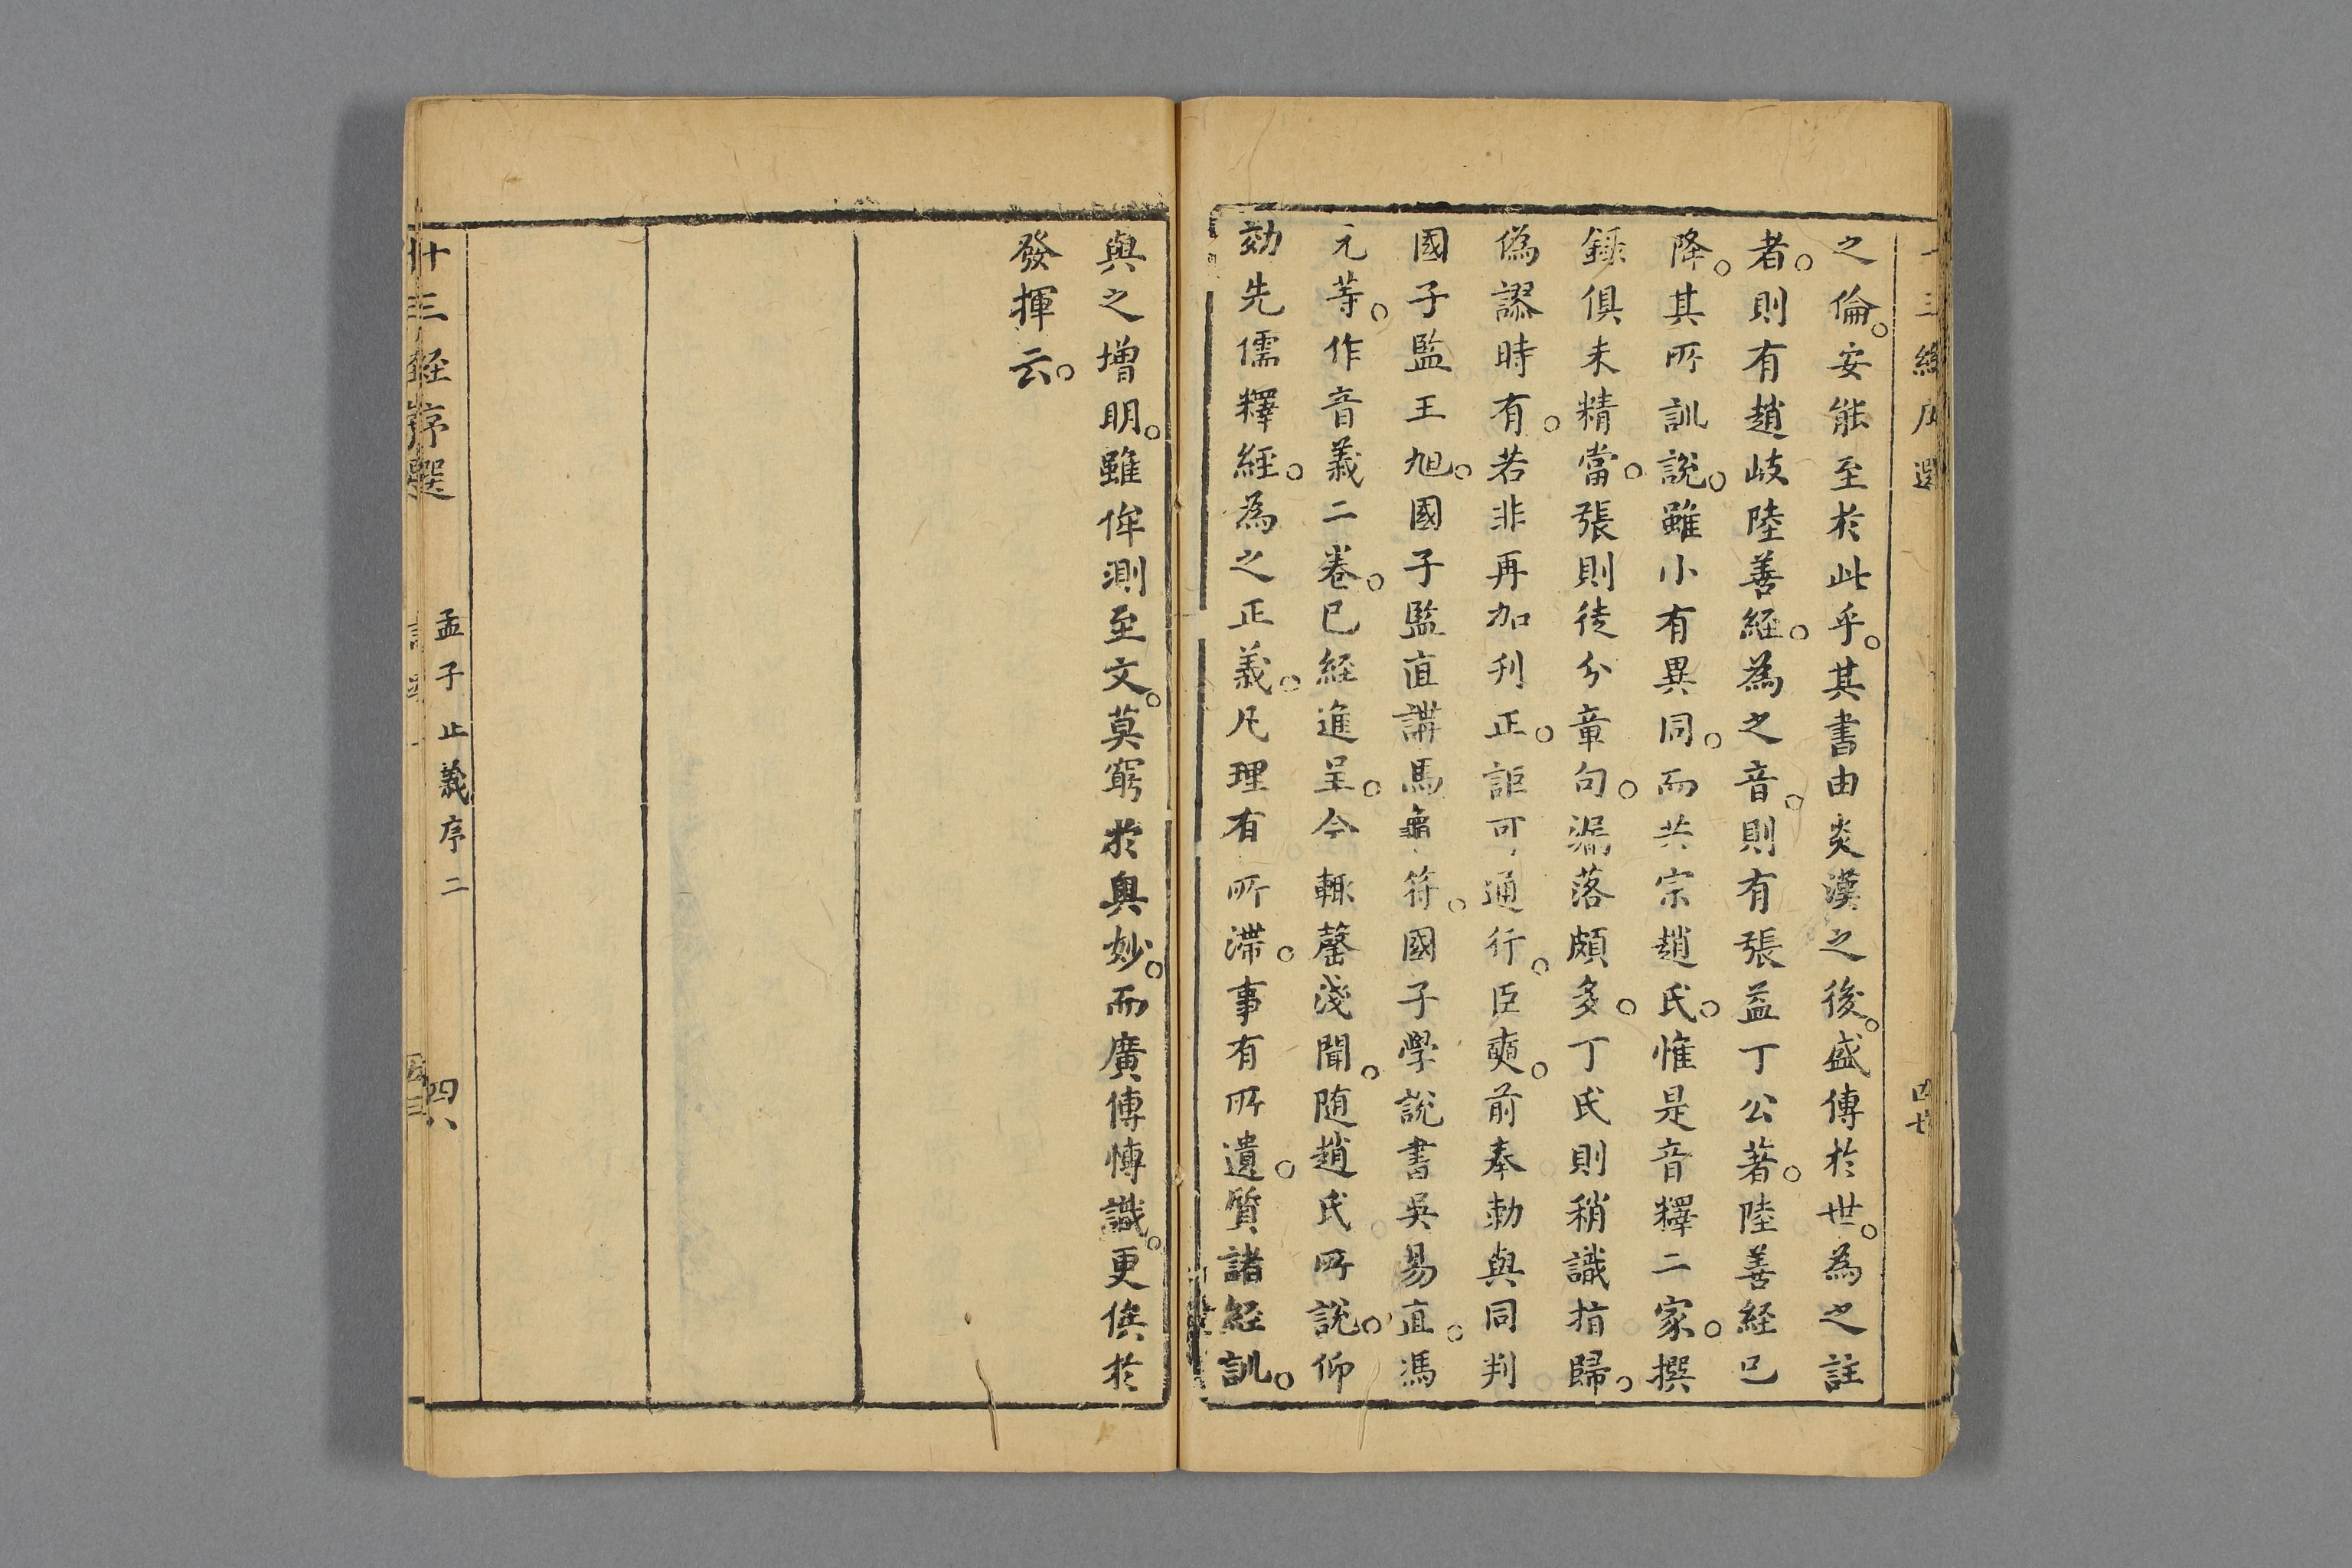 之倫。安能至於此乎。其書由炎漢之後。盛傳於世。為之註
者。則有趙岐陸善經。為之音。則有張益丁公著。陸善経已
降。其所訓說。雖小有異同。而共宗趙氏。惟是音釋二家。撰
錄俱未精當。張則徒分章句。漏落頗多。丁氏則稍識指歸。
偽謬時有。若非再加刋正。詎可通行。臣奭。前奉勅與同判
國子監王旭。國子監直講馬龜符。國子學說書吳易直。馮
元等。作音義二卷。已經進呈。今輒罄淺聞。随趙氏所說。仰
効先儒釋經。為之正義。凡理有所滯。事有所遺。質諸經訓。
與之增明。雖侔測至文。莫窮於奧妙。而廣傳愽識。更俟於
發揮云。
十三經序選
孟子正義序二
四八